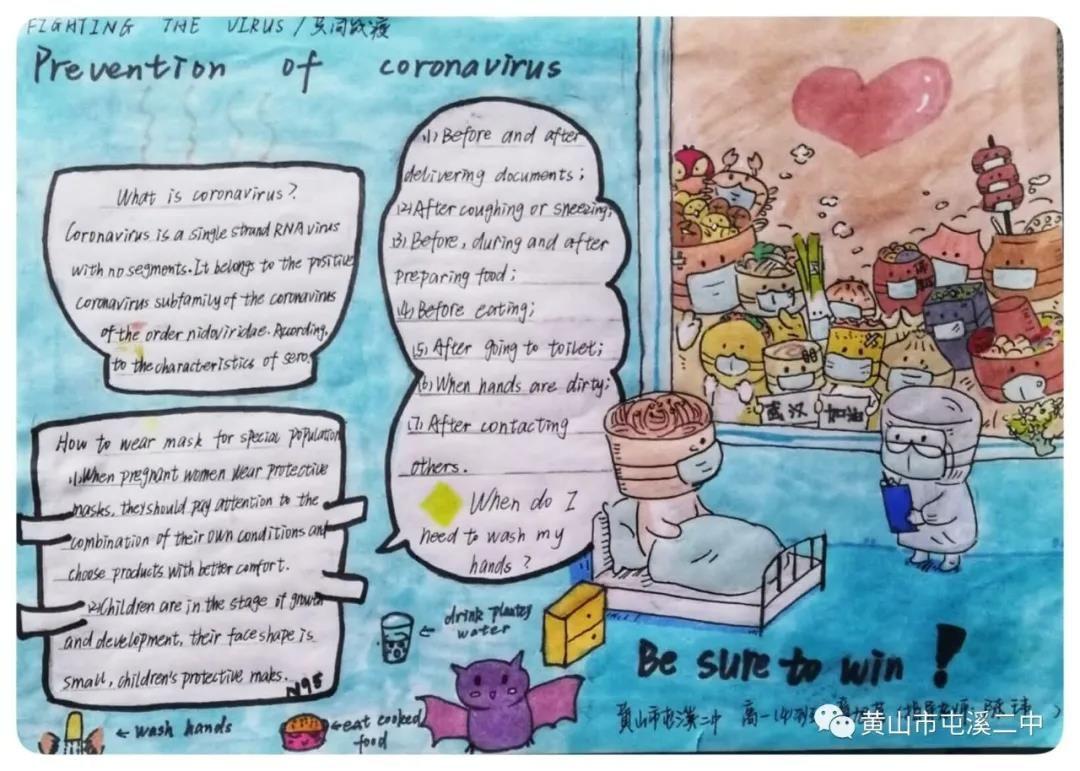 FIGHTING THE VIRUS / 共同战疫
Prevention of coronavirus
What is coronavirus?
Coronavirus is a single strand RNA virus
with no segments. It belongs to the positive
coronavirus subfamily of the coronavirus
of the order nidoviridae. According
to the characteristics of sero.
How to wear mask for special population
(1)When pregnant women wear protective
masks, they should pay attention to the
combination of their own conditions and
choose products with better comfort.
(2)Children are in the stage of growth
and development, their face shape is
small, children's protective maks.
N95
(1) Before and after
delivering documents;
(2) After coughing or sneezing;
(3) Before, during and after
preparing food;
(4) Before eating;
(5) After going to toilet;
(6) When hands are dirty;
(7) After contacting
others.
When do I
need to wash my
hands?
武汉 加油
drink plenty
water
wash hands
eat cooked
food
Be sure to win!
黄山市屯溪二中 高一
黄山市屯溪二中